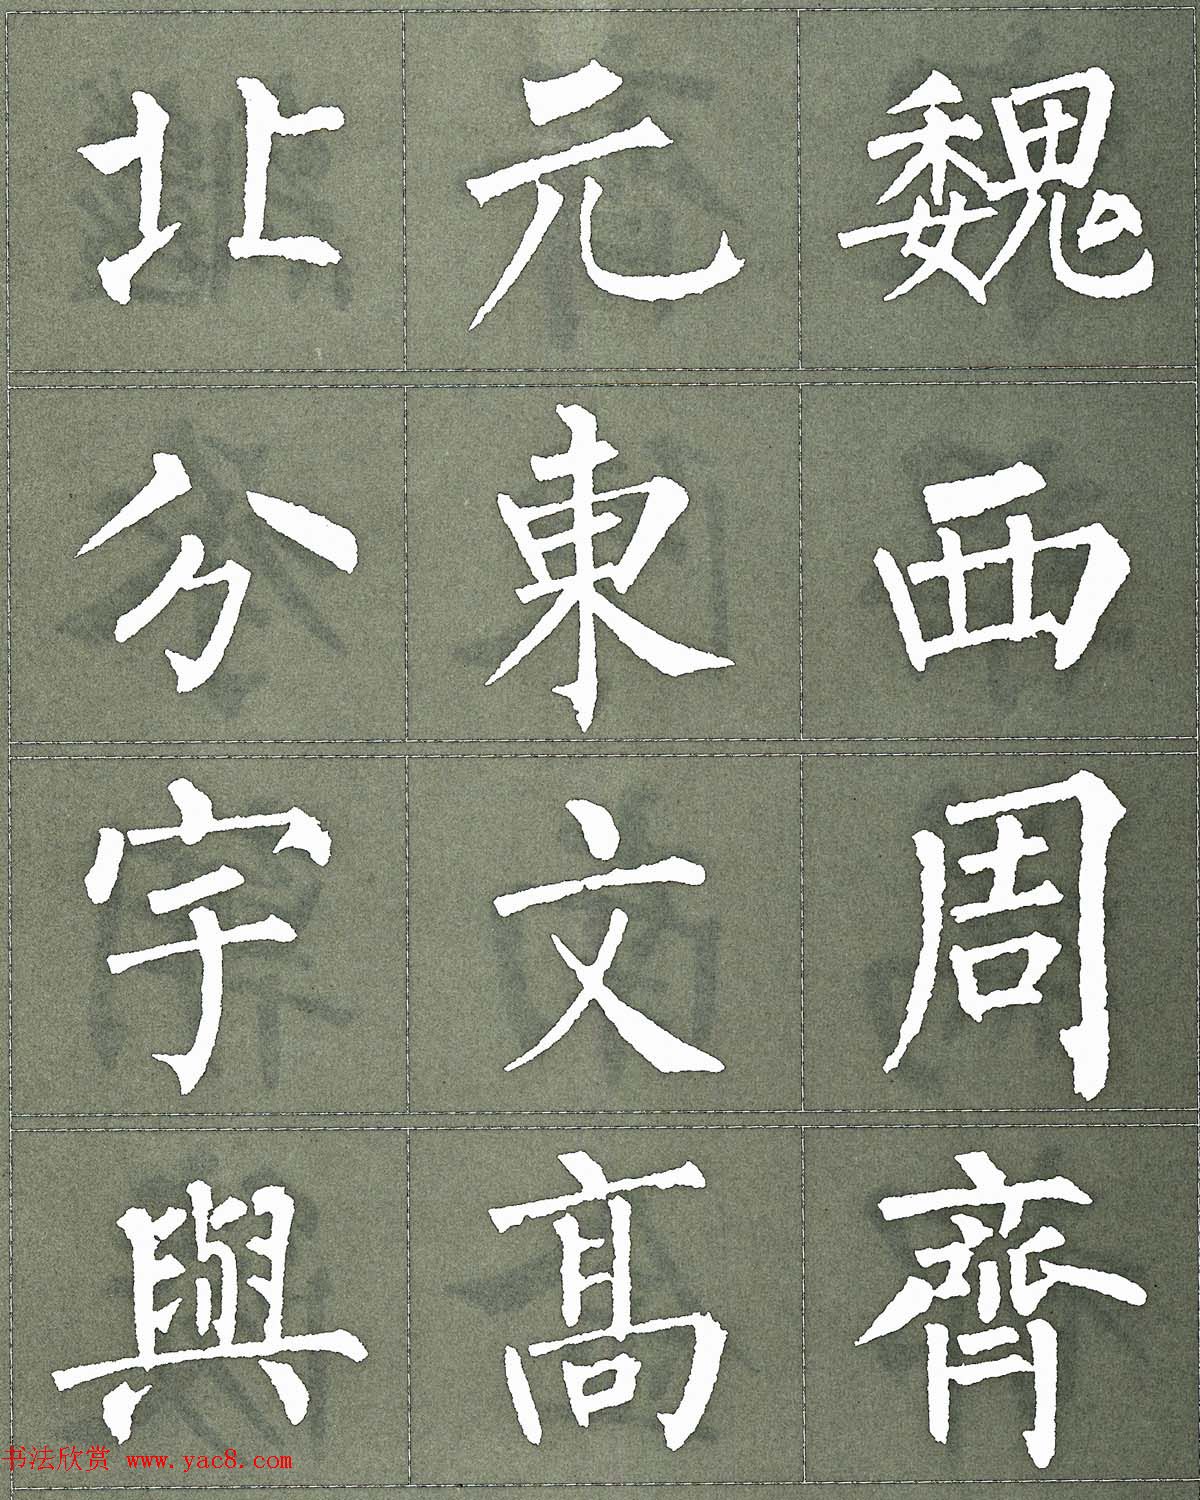 北元魏
分東西
宇文周
與髙齊
书法欣赏 www.yac8.com